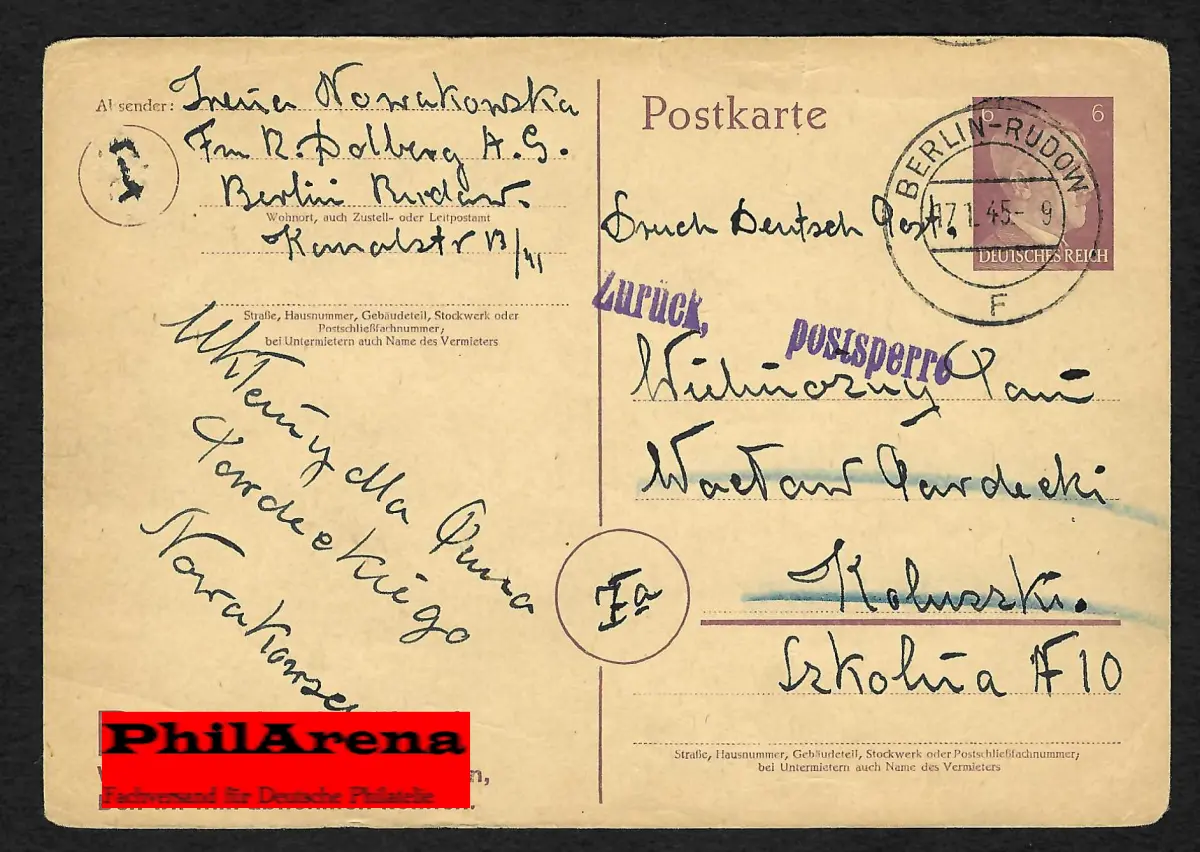 Absender: Irena Nowakowska
Fm R. Dolberg A.G.
Berlin Rudow.
Wohnort, auch Zustell- oder Leitpostamt
Kanalstr
Straße, Hausnummer, Gebäudeteil, Stockwerk oder
Postschließfachnummer;
bei Untermietern auch Name des Vermieters
Ukłony dla Pana
Pardeckiego
PhilArena
Fachversand für Deutsche Philatelie
Postkarte
6 6
DEUTSCHES REICH
BERLIN-RUDOW
17.1.45- 9
F
Druch Deutsch Post.
Zurück,
postsperre
Wielmożny Pan
Wacław Pardecki
Koluszki.
Szkolna N 10
Straße, Hausnummer, Gebäudeteil, Stockwerk oder Postschließfachnummer;
bei Untermietern auch Name des Vermieters